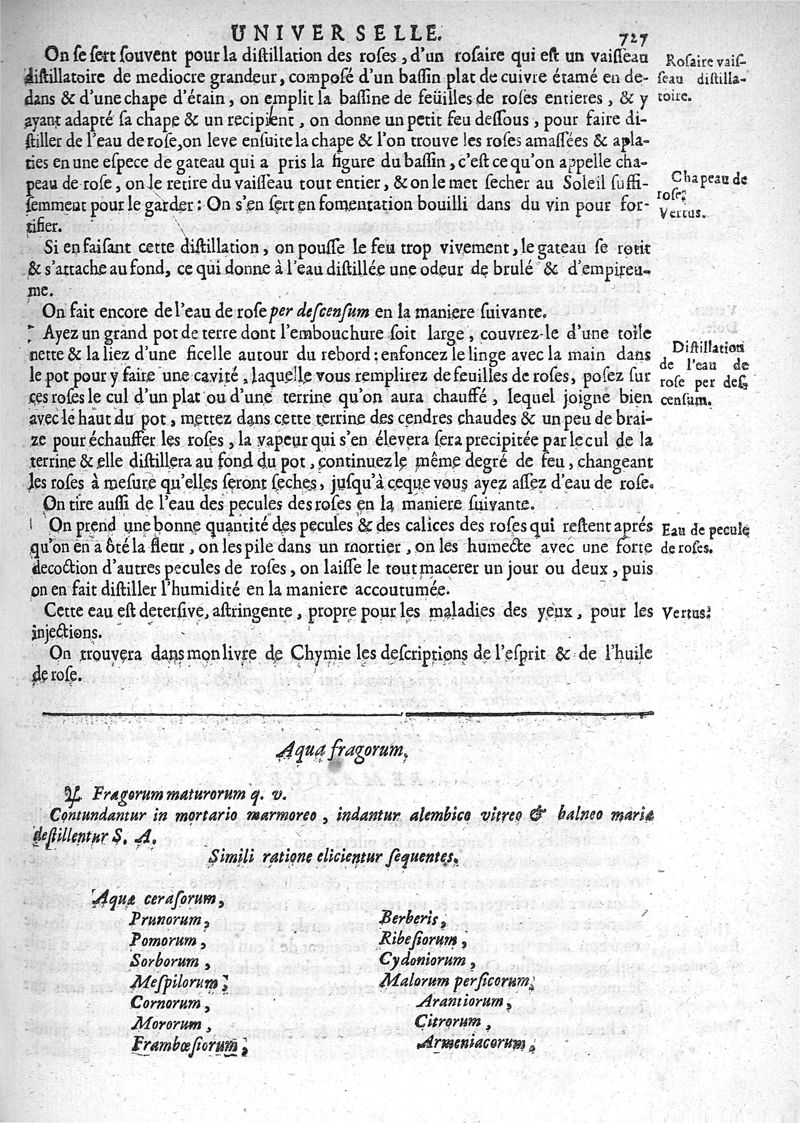 UNIVERSELLE.
727
On se sert souvent pour la distillation des roses, d'un rosaire qui est un vaisseau
distillatoire de mediocre grandeur, composé d'un bassin plat de cuivre étamé en de-
dans & d'une chape d'étain, on emplit la bassine de feüilles de roses entieres, & y
ayant adapté sa chape & un recipient, on donne un petit feu dessous, pour faire di-
stiller de l'eau de rose, on leve ensuite la chape & l'on trouve les roses amassées & apla-
ties en une espece de gateau qui a pris la figure du bassin, c'est ce qu'on appelle cha-
peau de rose, on le retire du vaisseau tout entier, & on le met secher au Soleil suffi-
semment pour le garder: On s'en sert en fomentation bouilli dans du vin pour for-
tifier.
Rosaire vais-
seau distilla-
toire.
Chapeau de
rose;
Vertus.
Si en faisant cette distillation, on pousse le feu trop vivement, le gateau se rotit
& s'attache au fond, ce qui donne à l'eau distillée une odeur de brulé & d'empireu-
me.
On fait encore de l'eau de rose per descensum en la maniere suivante.
Ayez un grand pot de terre dont l'embouchure soit large, couvrez-le d'une toile
nette & la liez d'une ficelle autour du rebord; enfoncez le linge avec la main dans
le pot pour y faire une cavité, laquelle vous remplirez de feuilles de roses, posez sur
ces roses le cul d'un plat ou d'une terrine qu'on aura chauffé, lequel joigne bien
avec le haut du pot, mettez dans cette terrine des cendres chaudes & un peu de brai-
ze pour échauffer les roses, la vapeur qui s'en élevera sera precipitée par le cul de la
terrine & elle distillera au fond du pot, continuez le même degré de feu, changeant
les roses à mesure qu'elles seront seches, jusqu'à ce que vous ayez assez d'eau de rose.
Distillation
de l'eau de
rose per des
censum.
On tire aussi de l'eau des pecules des roses en la maniere suivante.
On prend une bonne quantité des pecules & des calices des roses qui restent aprés
qu'on en a ôté la fleur, on les pile dans un mortier, on les humecte avec une forte
decoction d'autres pecules de roses, on laisse le tout macerer un jour ou deux, puis
on en fait distiller l'humidité en la maniere accoutumée.
Eau de pecule
de roses.
Cette eau est detersive, astringente, propre pour les maladies des yeux, pour les
injections.
Vertus.
On trouvera dans mon livre de Chymie les descriptions de l'esprit & de l'huile
de rose.
Aqua fragorum.
♃. Fragorum maturorum q. v.
Contundantur in mortario marmoreo, indantur alembico vitreo & balneo mariæ
destillentur S. A.
Simili ratione elicientur sequentes.
Aquæ cerasorum,
Prunorum,
Pomorum,
Sorborum,
Mespilorum,
Cornorum,
Mororum,
Frambœsiorum,
Berberis,
Ribesiorum,
Cydoniorum,
Malorum persicorum,
Arantiorum,
Citrorum,
Armeniacorum,